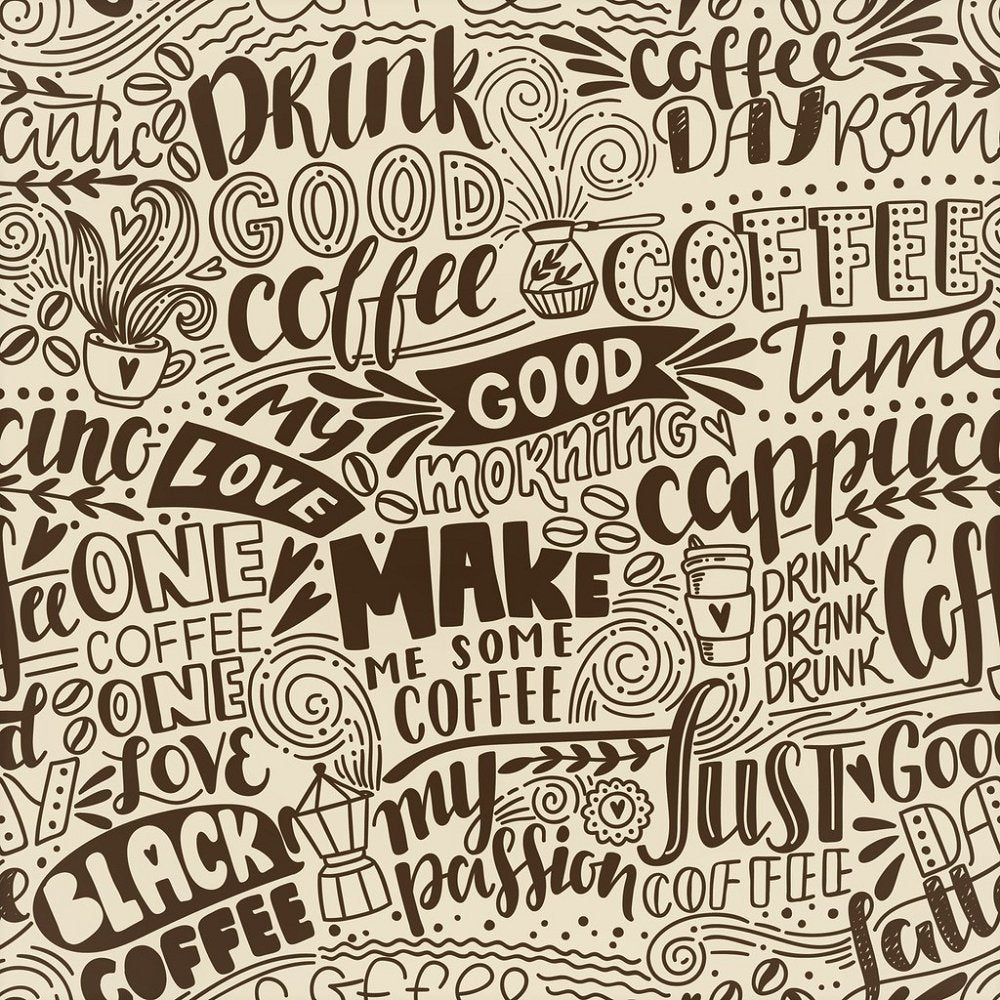 DRink
GOOD
coffee
coffee
DAY
Rom
antic
COFFEE
time
MY
LOVE
GOOD
MORNinG
cappucc
cino
ONE
COFFEE
ONE
LOVE
MAKE
ME SOME
COFFEE
DRINK
DRANK
DRUNK
Cof
fee
BLACK
COFFEE
my
passion
JUST
COFFEE
GOO
d
DA
Y
latte
coffee